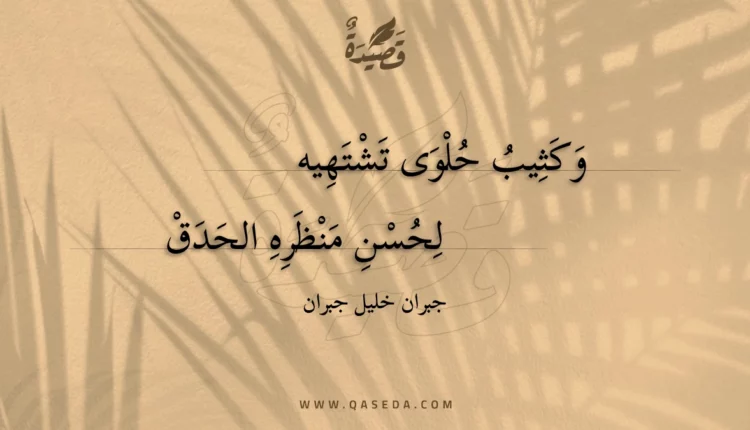 قَصِيْدَةٌ
وَكَثِيبُ حُلْوَى تَشْتَهِيه
لِحُسْنِ مَنْظَرِهِ الحَدَقْ
جبران خليل جبران
WWW.QASEDA.COM